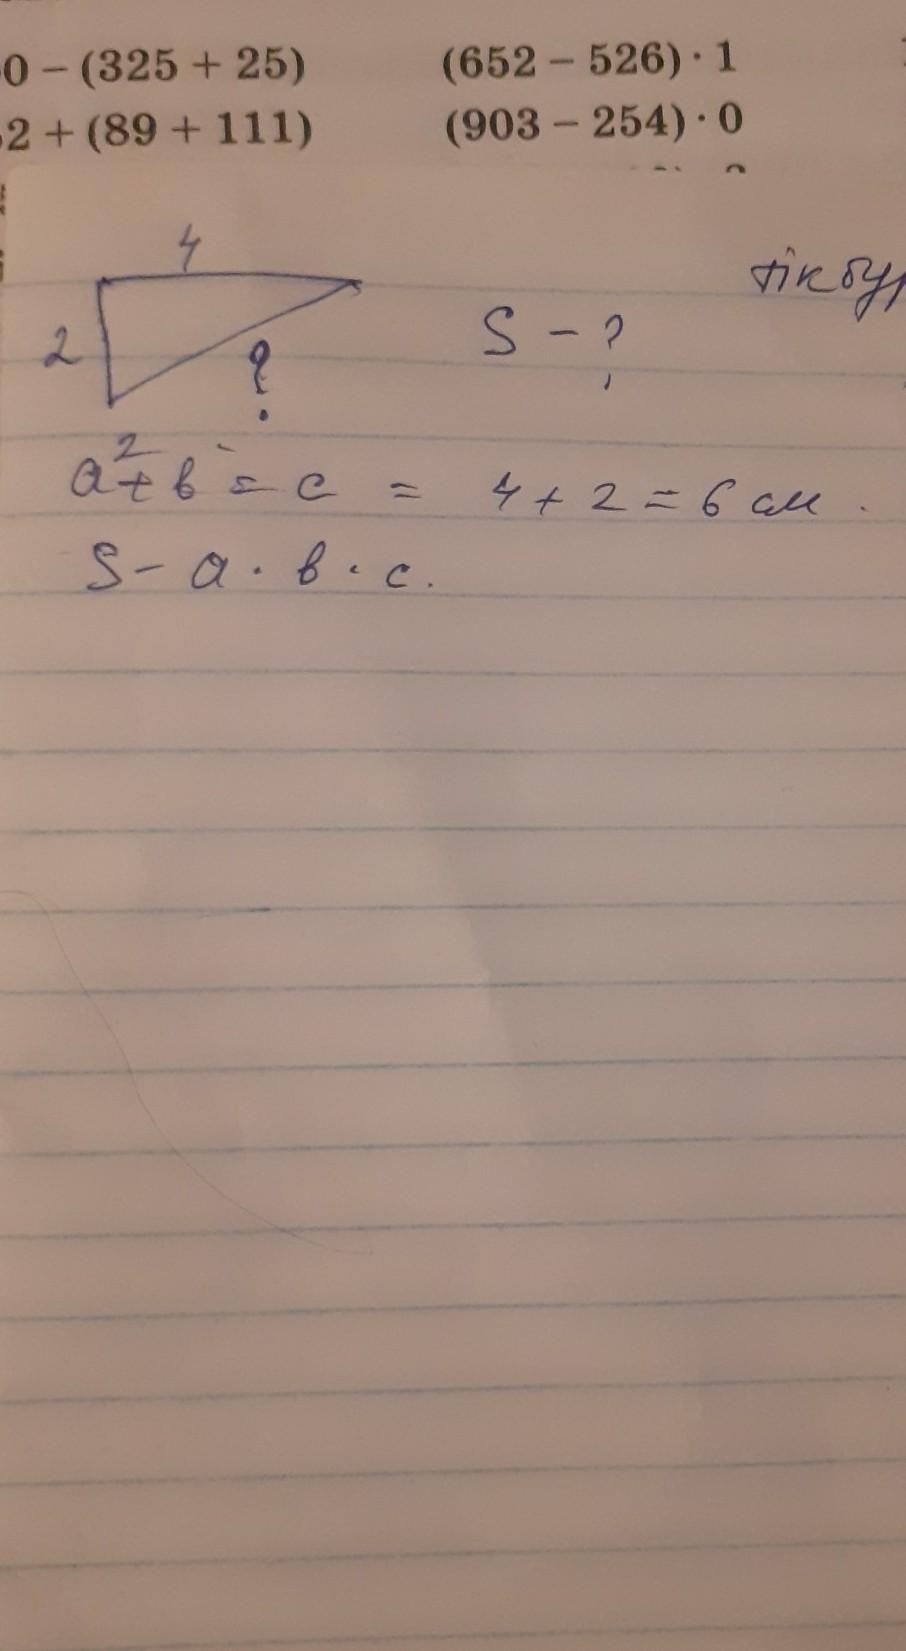 0 – (325 + 25) (652 – 526) · 1
2 + (89 + 111) (903 – 254) · 0
4
тікбұр
2
?
S – ?
a² + b = c = 4 + 2 = 6 см.
S – a · b · c.